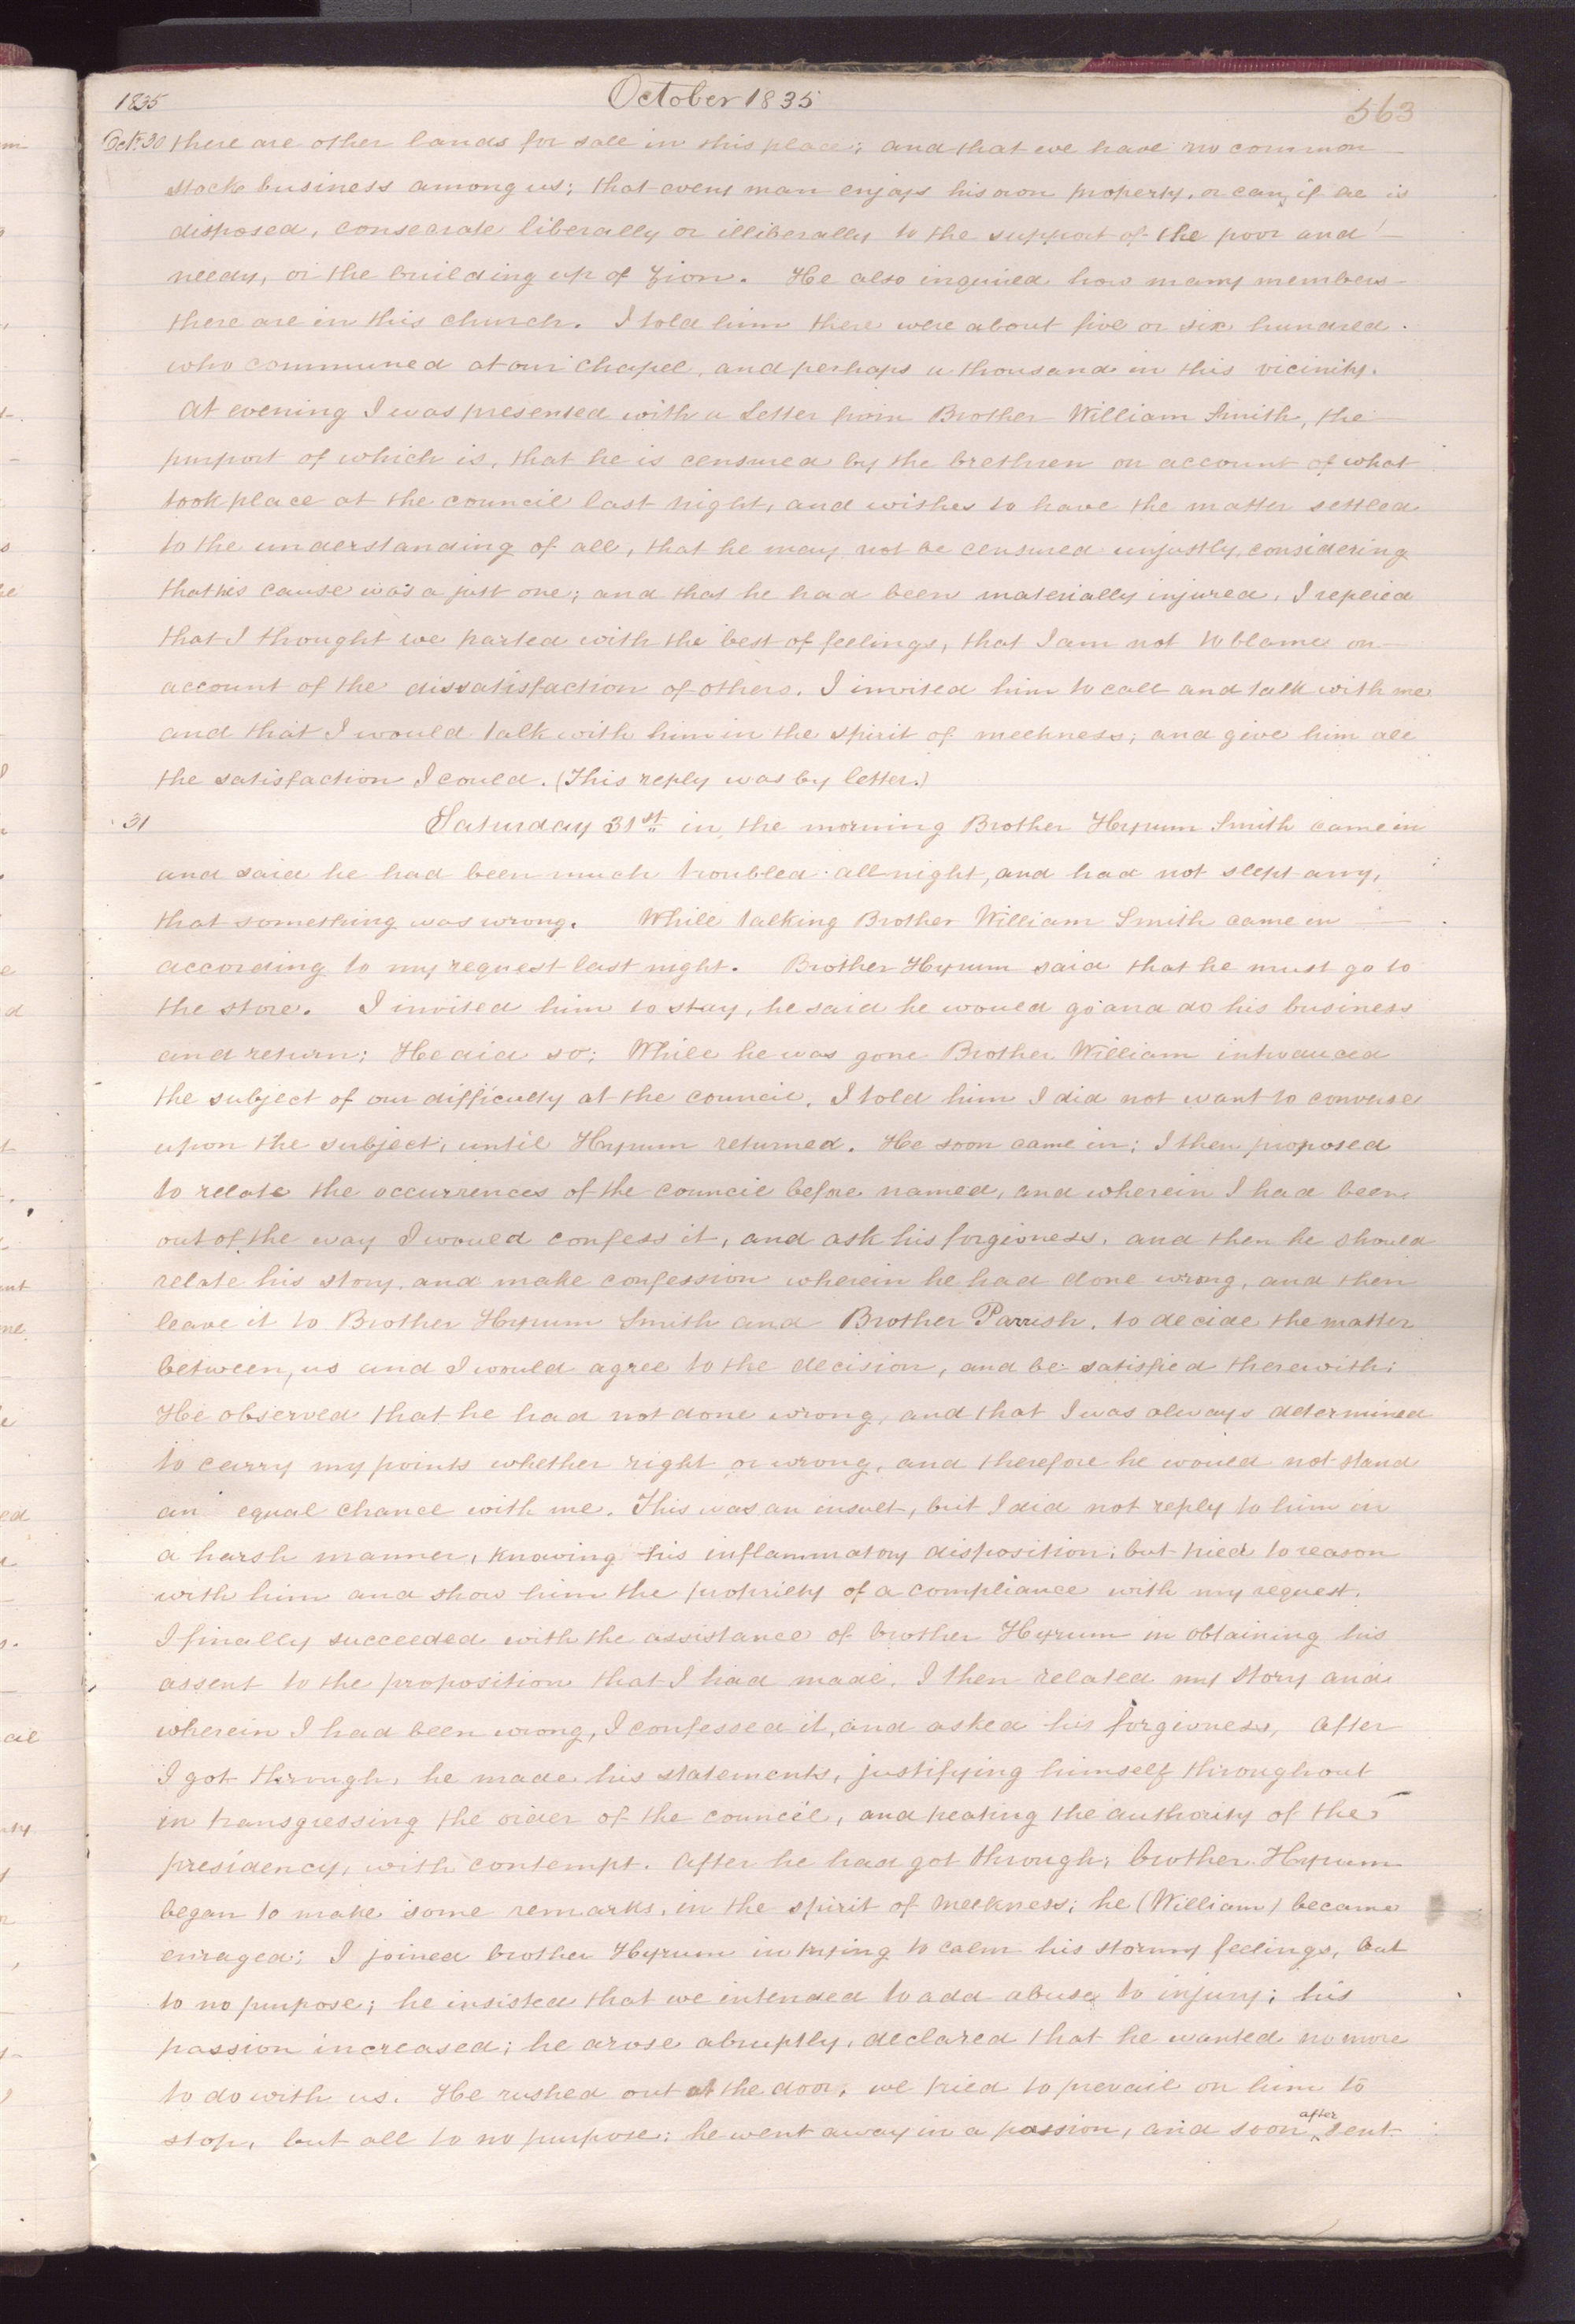 1835 October 1835 563
Oct. 30 there are other lands for sale in this place; and that we have no common
stock business among us; that every man enjoys his own property, or can, if he is
disposed, consecrate liberally or illiberally to the support of the poor and
needy, or the building up of Zion. He also inquired how many members
there are in this church. I told him there were about five or six hundred
who communed at our chapel, and perhaps a thousand in this vicinity.
At evening I was presented with a Letter from Brother William Smith, the
purport of which is, that he is censured by the brethren on account of what
took place at the council last night, and wishes to have the matter settled
to the understanding of all, that he may not be censured unjustly, considering
that his cause was a just one; and that he had been materially injured. I replied
that I thought we parted with the best of feelings, that I am not to blame on
account of the dissatisfaction of others. I invited him to call and talk with me
and that I would talk with him in the spirit of meekness; and give him all
the satisfaction I could. (This reply was by letter.)
31 Saturday 31st in the morning Brother Hyrum Smith came in
and said he had been much troubled all night, and had not slept any,
that something was wrong. While talking Brother William Smith came in
according to my request last night. Brother Hyrum said that he must go to
the store. I invited him to stay, he said he would go and do his business
and return; He did so; While he was gone Brother William introduced
the subject of our difficulty at the council. I told him I did not want to converse
upon the subject, until Hyrum returned. He soon came in; I then proposed
to relate the occurrences of the council before named, and wherein I had been
out of the way I would confess it, and ask his forgivness, and then he should
relate his story, and make confession wherein he had done wrong, and then
leave it to Brother Hyrum Smith and Brother Parrish, to decide the matter
between, us and I would agree to the decision, and be satisfied therewith;
He observed that he had not done wrong, and that I was always determined
to carry my points whether right or wrong, and therefore he would not stand
an equal chance with me. This was an insult, but I did not reply to him in
a harsh manner, knowing his inflammatory disposition; but tried to reason
with him and show him the propriety of a compliance with my request.
I finally succeeded with the assistance of brother Hyrum in obtaining his
assent to the proposition that I had made. I then related my story and
wherein I had been wrong, I confessed it, and asked his forgivness, After
I got through, he made his statements, justifying himself throughout
in transgressing the order of the council, and treating the authority of the
presidency, with contempt. After he had got through, brother Hyrum
began to make some remarks, in the spirit of meekness; he (William) became
enraged; I joined brother Hyrum in trying to calm his stormy feelings, but
to no purpose; he insisted that we intended to add abuse to injury; his
passion increased; he arose abruptly, declared that he wanted no more
to do with us. He rushed out at the door, we tried to prevail on him to
stop, but all to no purpose; he went away in a passion, and soon ^after sent